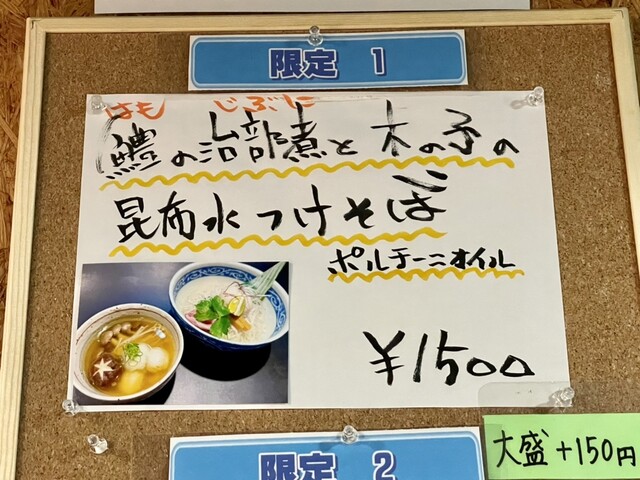 限定 1
はも じぶに
鱧の治部煮と木の子の
昆布水つけそば
ポルチーニオイル
¥1500
限定 2
大盛+150円